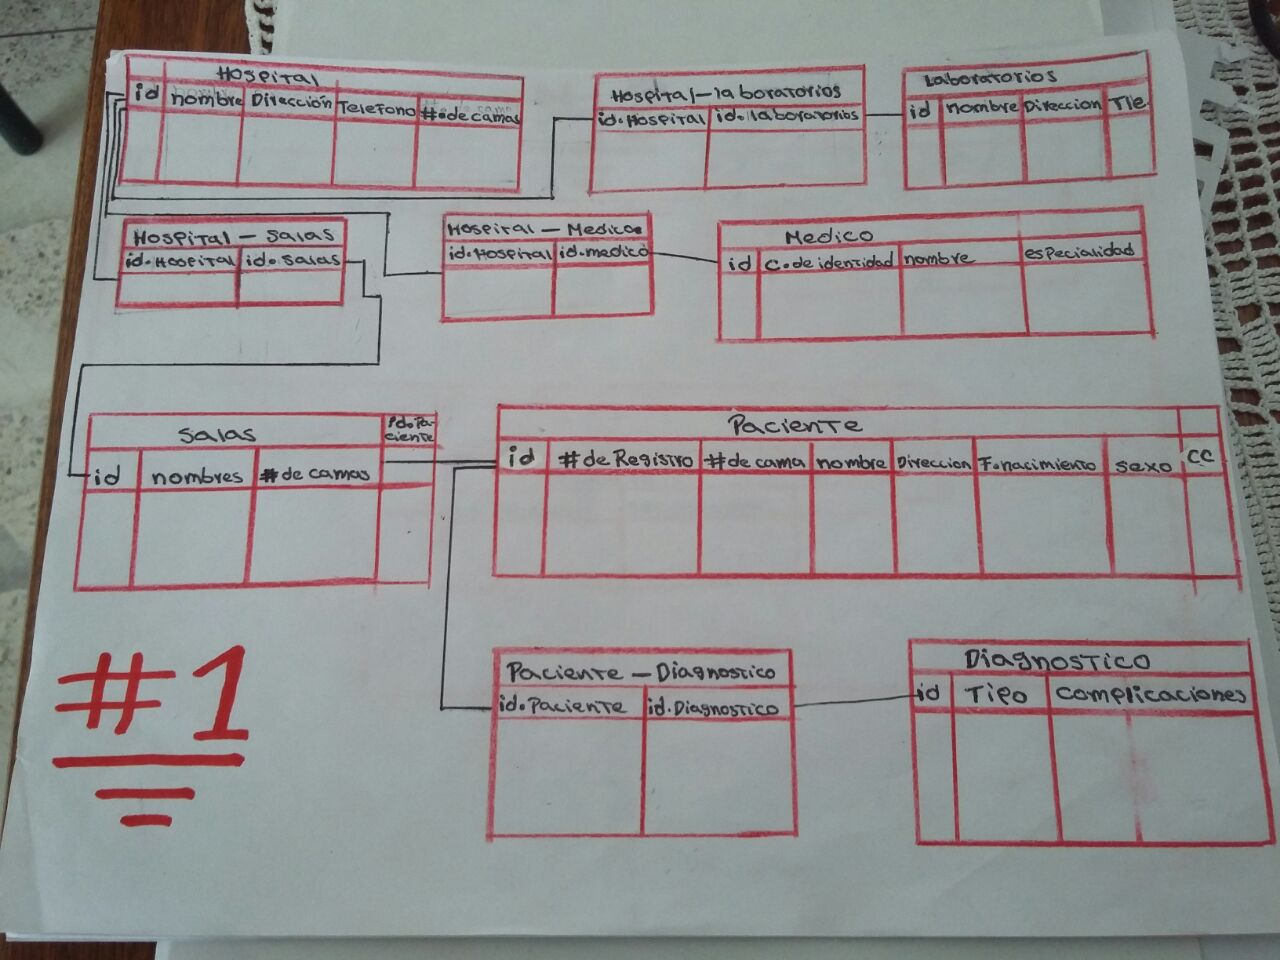 Hospital
id nombre Dirección Telefono #.de camas
Hospital-laboratorios
id.Hospital id.laboratorios
Laboratorios
id nombre Direccion Tle
Hospital - Salas
id.Hospital id.Salas
Hospital - Medico
id.Hospital id.medico
Medico
id C.de identidad nombre especialidad
Salas
id nombres # de camas
id.Pa-
ciente
Paciente
id # de Registro # de cama nombre Direccion F.nacimiento sexo CC
#1
Paciente - Diagnostico
id.Paciente id.Diagnostico
Diagnostico
id Tipo complicaciones